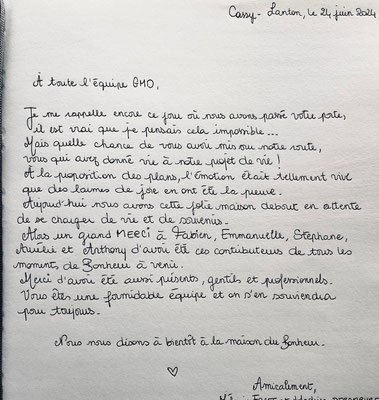 Cassy - Lanton, le 24 juin 2024
À toute l'équipe GMO,
Je me rappelle encore ce jour où nous avons passé votre porte,
il est vrai que je pensais cela impossible ...
Mais quelle chance de vous avoir mis sur notre route,
vous qui avez donné vie à notre projet de vie !
À la proposition des plans, l'émotion était tellement vive
que des larmes de joie en ont été la preuve.
Aujourd'hui nous avons cette jolie maison debout en attente
de se charger de vie et de souvenirs.
Alors un grand MERCI à Fabien, Emmanuelle, Stéphane,
Aurélie et Anthony d'avoir été ces contributeurs de tous les
moments de Bonheur à venir.
Merci d'avoir été aussi présents, gentils et professionnels.
Vous êtes une formidable équipe et on s'en souviendra
pour toujours.
Nous nous disons à bientôt à la maison du Bonheur.
♡
Amicalement,